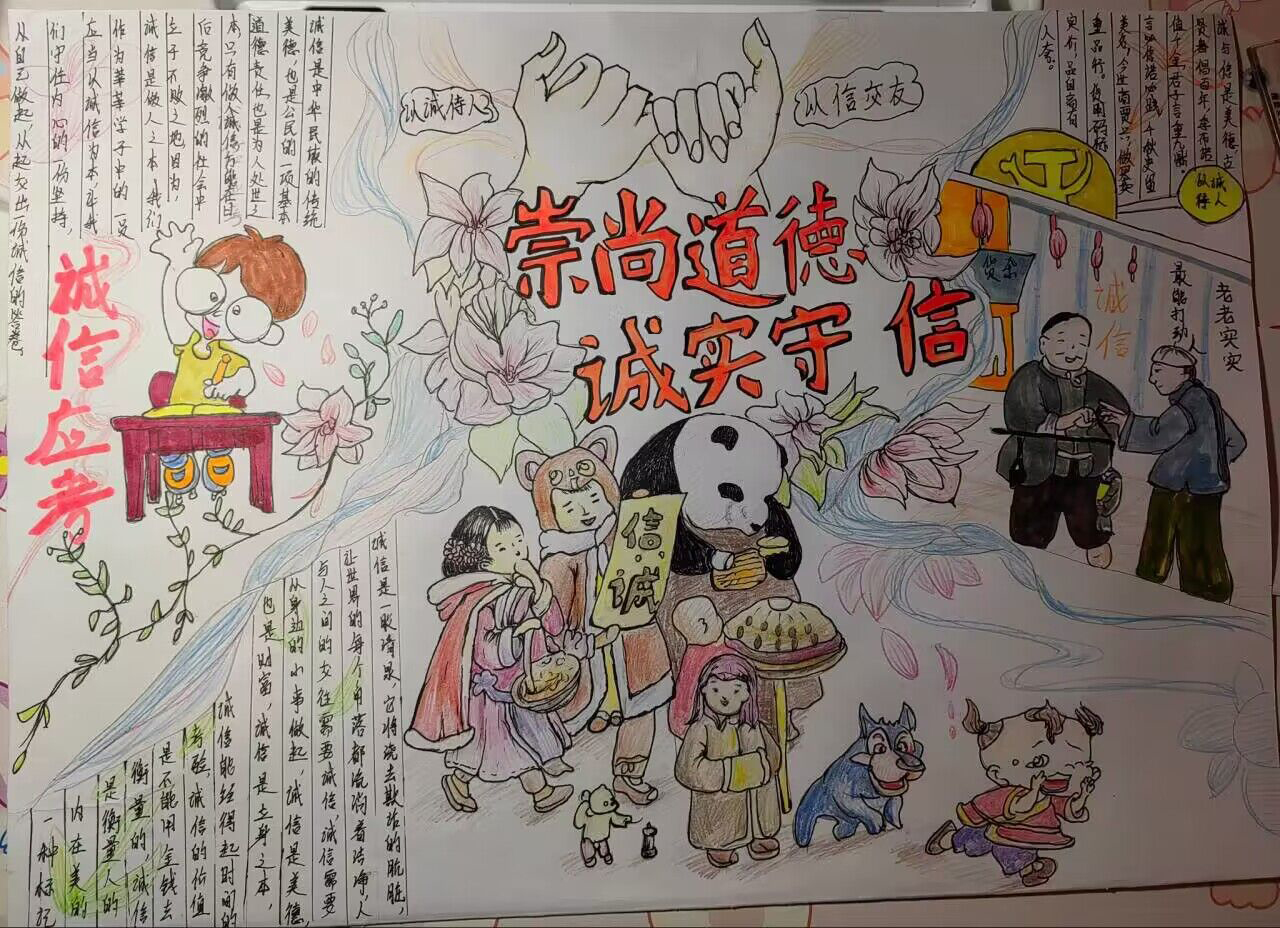 崇尚道德
诚实守信
以诚待人
以信交友
诚信应考
诚信是中华民族的传统
美德，也是公民的一项基本
道德责任也是为人处世之
本只有做人诚信方能在日
后竞争激烈的社会中
立于不败之地。因为，
诚信是做人之本，我们
作为莘莘学子中的一员
应当以诚信为本，在我
们守住内心的一份坚持，
从自己做起，从起交出一份诚信的答卷
诚与信是美德，交
值千金君子言重九鼎。
重品行。
人夸。
诚人
以待
货杂
诚信
最能打动人
老老实实
信诚
诚信是一股清泉，它将洗去欺诈的肮脏，
让世界的每个角落都流淌着洁净，人
与人之间的交往需要诚信，诚信需要
从身边的小事做起，诚信是美德，
也是财富，诚信是立身之本，
诚信能经得起时间的
考验，诚信的价值
是不能用金钱去
衡量的，诚信
是衡量人的
内在美的
一种标记